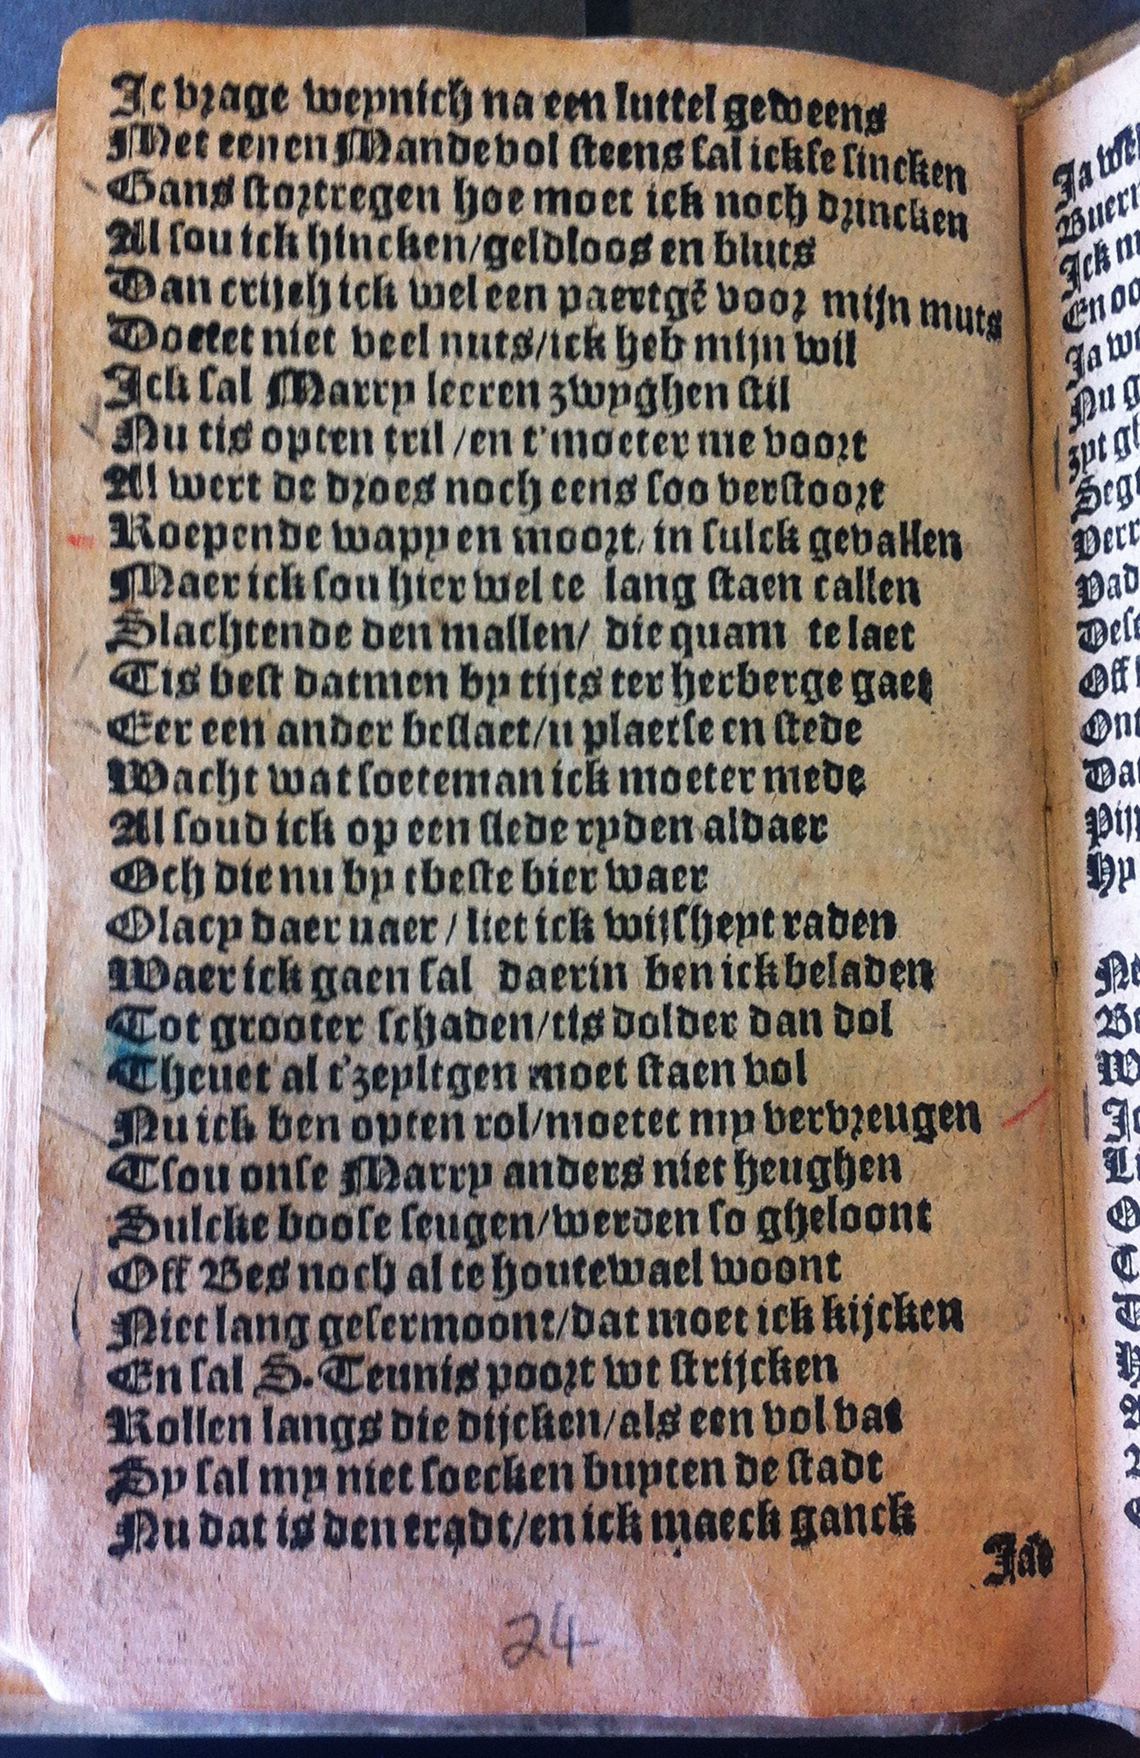 Ic vrage weynich na een luttel geweens
Met eenen Mande vol steens sal ickse sincken
Gans stortregen hoe moet ick noch drincken
Al sou ick hincken/geldloos en bluts
Dan crijch ick wel een paertgē voor mijn muts
Doetet niet veel nuts/ick heb mijn wil
Ick sal Marry leeren zwyghen stil
Nu tis opten tril/en t'moeter me voort
Al wert de droes noch eens soo verstoort
Roepende wapy en moort/in sulck gevallen
Maer ick sou hier wel te lang staen callen
Slachtende den mallen/ die quam te laet
Tis best datmen by tijts ter herberge gaet
Eer een ander beslaet/u plaetse en stede
Wacht wat soeteman ick moeter mede
Al soud ick op een slede ryden aldaer
Och die nu by tbeste bier waer
Olacy daer naer/liet ick wijsheyt raden
Waer ick gaen sal daerin ben ick beladen
Tot grooter schaden/tis dolder dan dol
Theuet al t'zeyltgen moet staen vol
Nu ick ben opten rol/moetet my vervreugen
Tsou onse Marry anders niet heughen
Sulcke boose seugen/werden so gheloont
Off Bes noch al te houtewael woont
Niet lang gesermoont/dat moet ick kijcken
En sal S. Teunis poort wt strijcken
Rollen langs die dijcken/als een vol vat
Sy sal my niet soecken buyten de stadt
Nu dat is den tradt/en ick maeck ganck
24